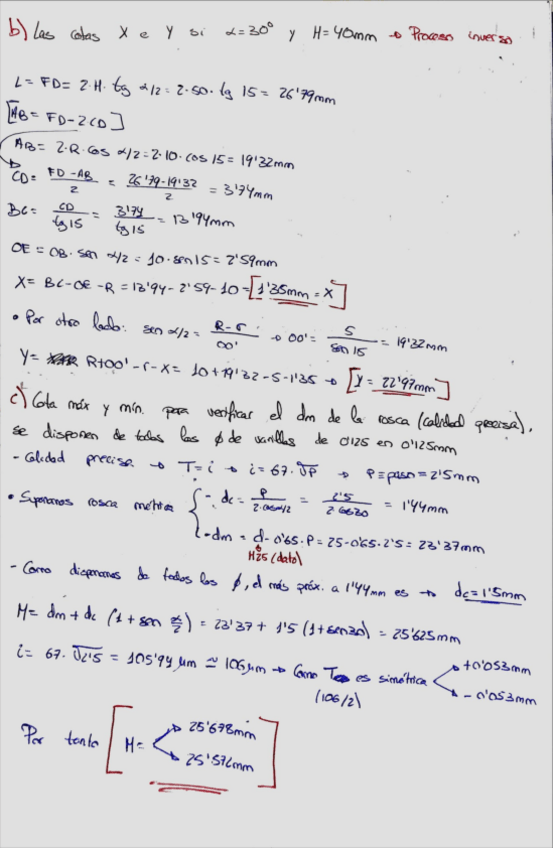 b) Las cotas X e Y si α=30° y H=40mm → Proceso inverso
L = FD = 2·H·tg α/2 = 2·50·tg 15 = 26'79mm
[AB = FD-2CD]
AB = 2·R·cos α/2 = 2·10·cos 15 = 19'32mm
CD = FD-AB/2 = 26'79-19'32/2 = 3'74mm
BC = CD/tg15 = 3'74/tg15 = 13'94mm
OE = OB·sen α/2 = 10·sen15 = 2'59mm
X = BC-OE-R = 13'94-2'59-10 = [1'35mm = X]
• Por otro lado: sen α/2 = R-r/OO' → OO' = 5/sen 15 = 19'32mm
Y = R+OO'-r-X = 10+19'32-5-1'35 → [Y = 22'97mm]
c) Cota máx y mín. para verificar el dm de la rosca (calidad precisa),
se disponen de todas las ϕ de varillas de 0'125 en 0'125mm
- Calidad precisa → T=i → i=67·√P → P≡paso=2'5mm
• Suponemos rosca métrica { -. dc = P/2·cosα/2 = 2'5/2·cos30 = 1'44mm
-dm = d-0'65·P = 25-0'65·2'5 = 23'37mm
M25 (dato)
- Como disponemos de todos los ϕ, el más próx. a 1'44mm es → dc=1'5mm
M = dm + dc (1+sen α/2) = 23'37 + 1'5 (1+sen30) = 25'625mm
i = 67·√2'5 = 105'94 μm ≃ 106μm → Como T es simétrica +0'053mm
(106/2) -0'053mm
Por tanto [M= 25'678mm
25'572mm]